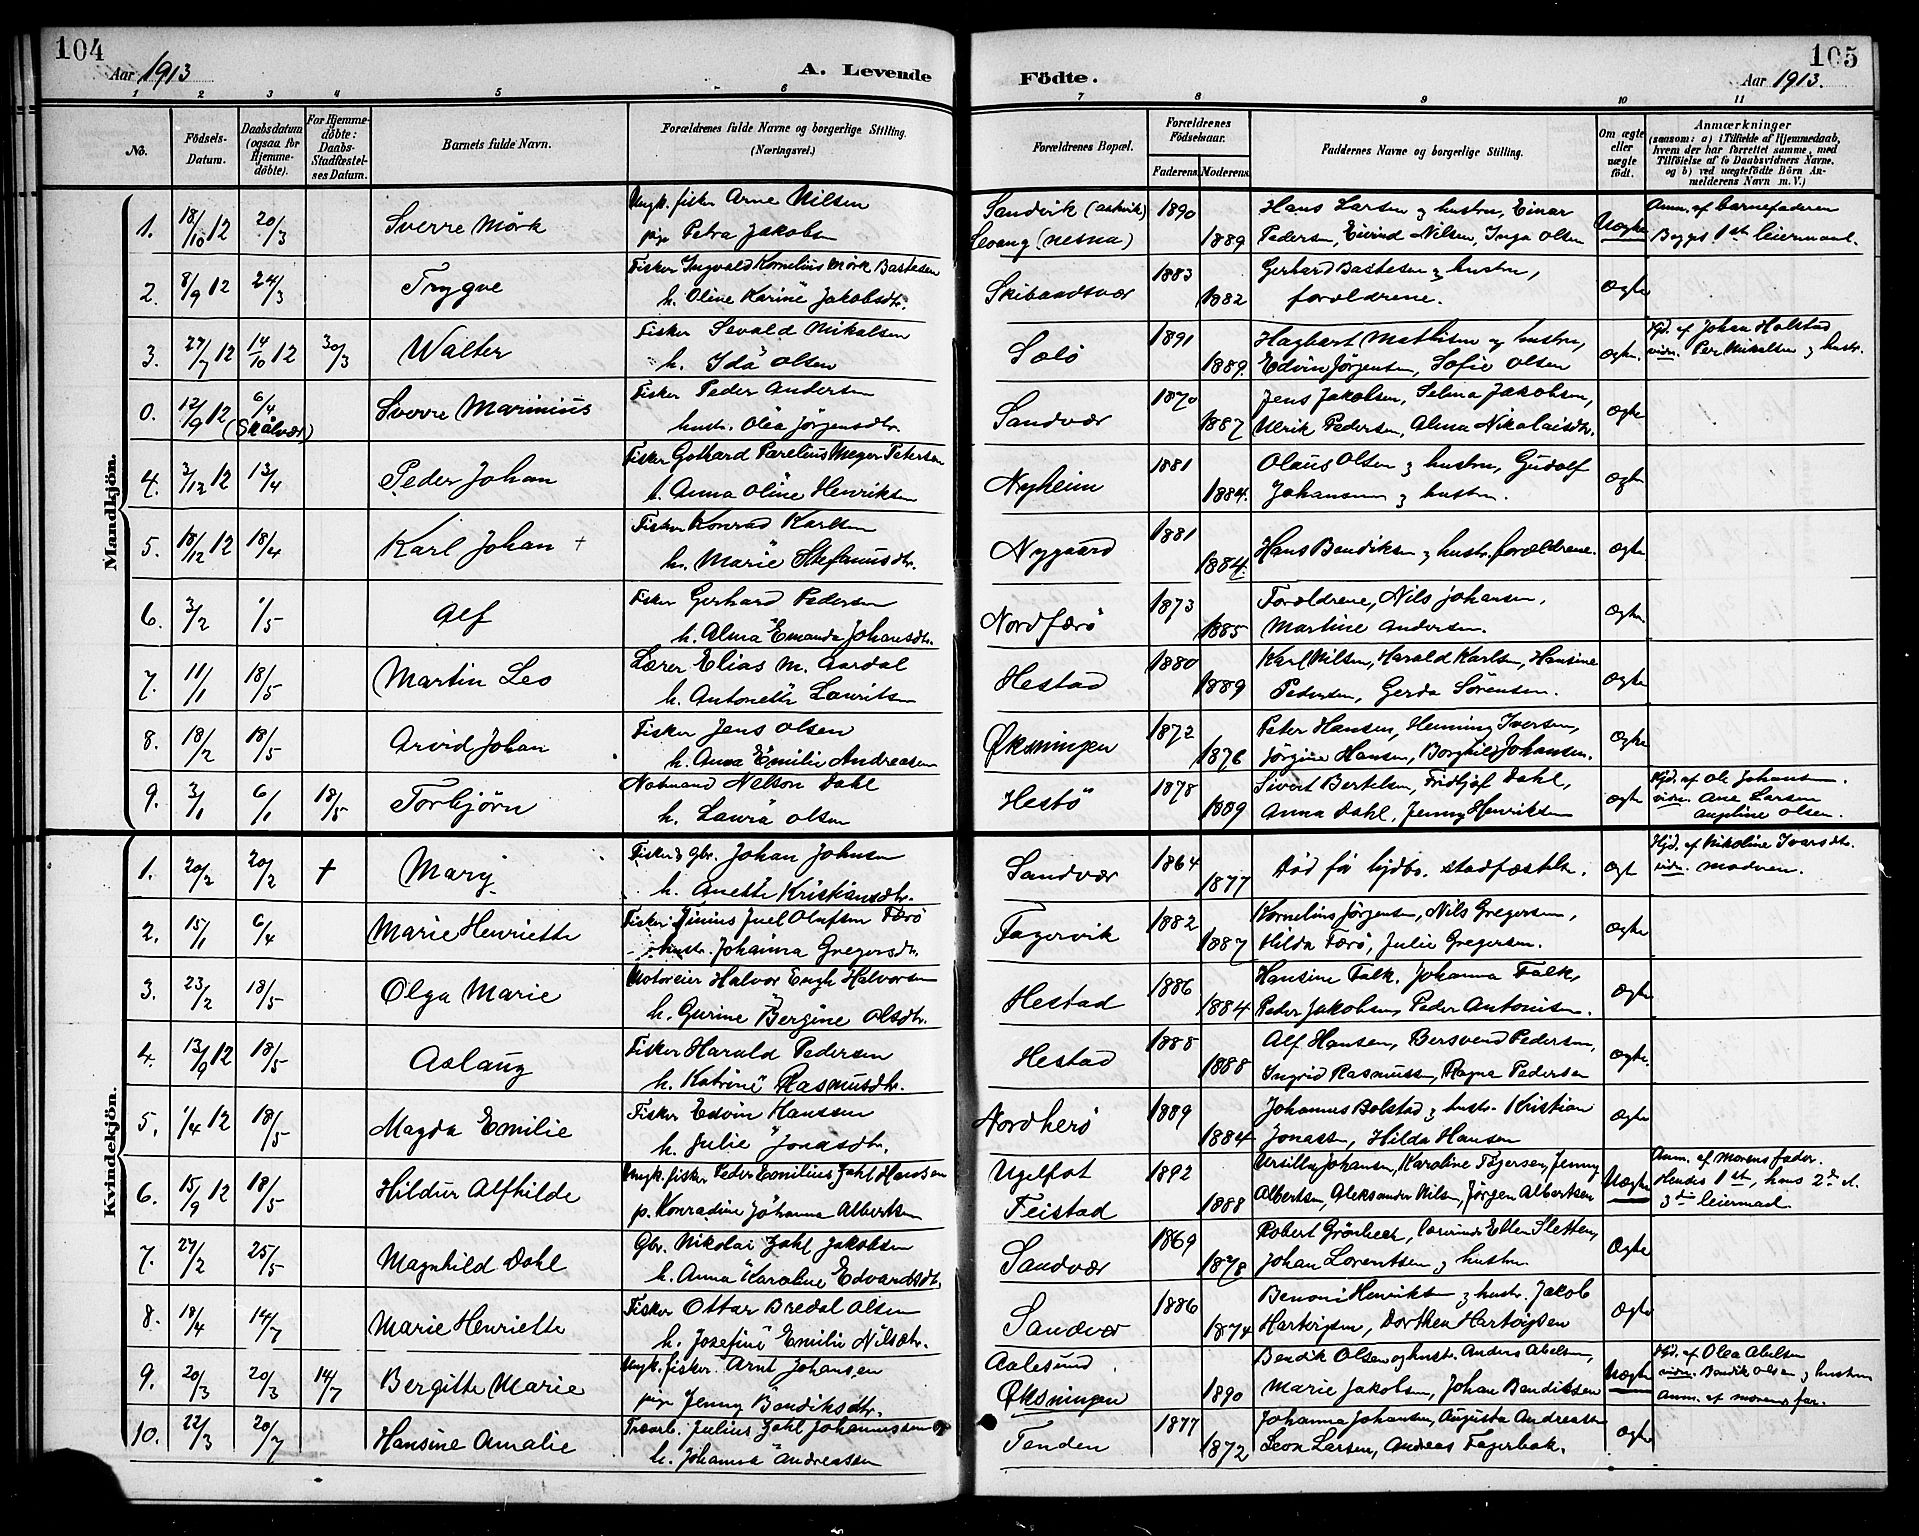 104
Aar 1913
A. Levende
Födte.
105
Aar 1913.
1 2 3 4 5 6 7 8 9 10 11
No.
Födsels-Datum.
Daabsdatum (ogsaa for Hjemme-döbte).
For Hjemme-döbte: Daabs-Stadfæstel-ses Datum.
Barnets fulde Navn.
Forældrenes fulde Navne og borgerlige Stilling. (Næringsvei.)
Forældrenes Bopæl.
Forældrenes Födselsaar.
Faderens Moderens
Faddernes Navne og borgerlige Stilling.
Om ægte eller uægte födt.
Anmærkninger
(saasom: a) i Tilfælde af Hjemmedaab, hvem der har forrettet samme, med Tilföielse af to Daabsvidners Navne. og b) ved uægtefödte Börn An-melderens Navn m. V.)
Mandkjön.
1. 18/10 12 20/3 Sverre Mörk Ungk. fisker Arne Nilsen Sandvik (Askvik) 1890 Hans Larsen & hustru, Einar Uægte Anm. af barnefaderen
pige Petra Jakobsen Levang (Nesna) 1889 Pedersen, Eivind Nilsen, Inga Olsen Begges 1ste leiermaal.
2. 8/9 12 24/3 Trygve Fisker Ingvald Kornelius Mörk Bastesen Skibaadsvær 1883 Gerhard Bastesen & hustru, Ægte
h. Oline Karine Jakobsdtr. 1882 forældrene.
3. 27/7 12 14/10 12 30/3 Walter Fisker Sevald Mikalsen Sælö 1891 Hagbart Mathisen og hustru, Ægte. Hjd. af Johan Holstad
h. Ida Olsen 1889. Edvin Jörgensen, Sofie Olsen vidn. Per Mikalsen & hustr.
0. 12/9 12 6/4 (Skålvær) Sverre Marinius Fisker Peder Andersen Sandvær 1870 Jens Jakobsen, Selma Jakobsen, Ægte
hustr. Olea Jörgensdtr. 1887 Ulrik Pedersen, Alma Nikolaisdtr.
4. 3/12 12 13/4 Peder Johan Fisker Gothard Parelius Meyer Petersen Nyheim 1881 Olaus Olsen & hustru, Gudolf Ægte
h. Anna Oline Henriksen 1884. Johansen & hustru.
5. 18/12 12 18/4 Karl Johan + Fisker Konrad Karlsen Nygaard 1881 Ægte
h. Marie Stefanusdtr. 1884. Hans Bendiksen & hustr. forældrene.
6. 3/2 1/5 Alf Fisker Gerhard Pedersen Nordfærö 1873 Forældrene, Nils Johansen, Ægte.
h. Alma Emanda Johansdtr. 1885 Martine Andersen.
7. 11/1 18/5 Martin Leo Lærer Elias M. Aardal Hestad 1880 Karl Nilsen, Harald Karlsen, Hansine Ægte
h. Antonette Lauritsen 1889 Pedersen, Gerda Sörensen.
8. 18/2 18/5 Arvid Johan Fisker Jens Olsen Øksningen 1872 Peter Hansen, Henning Iversen, Ægte
h. Anna Emilie Andreasen 1876 Jörgine Hansen, Borghild Johansen.
9. 3/1 6/1 18/5 Torbjörn Notmand Nelson Dahl Hestö 1878 Sivert Bertelsen, Fridtjof Dahl, Ægte Hjd. af Ole Johansen.
h. Laura Olsen 1889 Anna Dahl, Jenny Henriksen vidn. Ane Larsen
Angeline Olsen.
Kvindekjön.
1. 20/2 20/2 + Mary Fisker & gbr. Johan Johnsen Sandvær 1864 Död för hjdb. stadfæstelse. Ægte Hjd. af Nikoline Ivarsdtr.
h. Anette Kristiansdtr. 1877 vidn. Modren.
2. 15/1 6/4 Marie Henriette Fisker Junius Juel Olufsen Færö Fagervik 1882 Kornelius Jörgensen, Nils Gregersen, Ægte
hustr. Johanna Gregersdtr. 1887 Hilda Færö, Julie Gregersen.
3. 23/2 18/5 Olga Marie Motoreier Halvor Engh Halvorsen Hestad 1886 Hansine Falk, Johanna Falk, Ægte
h. Gurine Bergine Olsdtr. 1884 Peder Jakobsen, Peder Antonisen.
4. 13/9 12 18/5 Aslaug Fisker Harald Pedersen Hestad 1888 Alf Hansen, Bersvend Pedersen, Ægte.
h. Katrine Rasmusdtr. 1888 Ingrid Rasmussen, Ragna Pedersen
5. 1/4 12 18/5 Magda Emilie Fisker Edvin Hanssen Nordherö 1889 Johannes Bolstad & hustr. Kristian Ægte
h. Julie Jonasdtr. 1884 Jonassen, Hilda Hansen
6. 15/9 12 18/5 Hildur Alfhilde Ungk. fisker Peder Emilius Zahl Hansen Ugelfot 1892 Ursilla Johansen, Karoline Fagersen, Jenny Uægte Anm. af morens fader.
p. Konradine Johanna Albertsen Feistad 1888 Albertsen, Aleksander Nilsen, Jörgen Albertsen Hendes 1ste, hans 2de el.
3die leiermaal
7. 27/2 25/5 Magnhild Dahl Gbr. Nikolai Zahl Jakobsen Sandvær 1869 Robert Grönbeck, Ellen Sletten, Ægte
h. Anna Karoline Edvardsdtr. 1878 Johan Lorentsen & hustru
8. 18/4 14/7 Marie Henriette Fisker Ottar Bredal Olsen Sandvær 1886 Benoni Henriksen & hustr. Jakob Ægte
h. Josefine Emilie Nilsdtr. 1874 Hartvigsen, Dorthea Hartvigsen
9. 20/3 20/3 14/7 Bergitte Marie Ungk. fisker Arnt Johansen Aalesund. Bendik Olsen og hustr. Anders Abelsen, Uægte Hjd. af Olea Abelsen
pige Jenny Bendiksdtr. Øksningen 1890 Marie Jakobsen, Johan Bendiksen vidn. Bendik Olsen & hustru
Anm. af morens far.
10. 22/3 20/7 Hansine Amalie Træarb. Julius Zahl Johannessen Tenden 1877 Johanna Johansen, Augusta Andreassen Ægte
h. Johanna Andreassen 1872 Leon Larsen, Andreas Fagerbak.